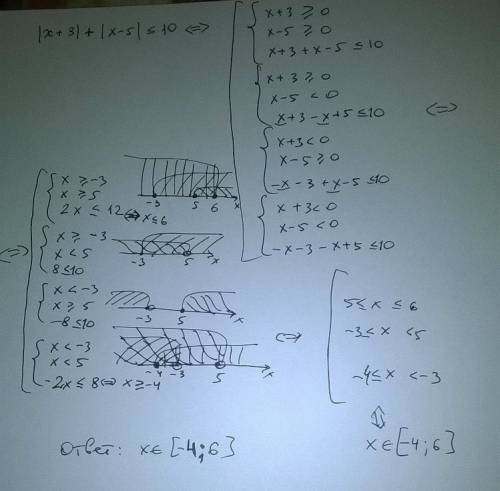 |x+3| + |x-5| ≤ 10 <=>
x+3 ≥ 0
x-5 ≥ 0
x+3+x-5 ≤ 10
x+3 ≥ 0
x-5 < 0
x+3-x+5 ≤ 10
<=>
x+3 < 0
x-5 ≥ 0
-x-3+x-5 ≤ 10
x+3 < 0
x-5 < 0
-x-3-x+5 ≤ 10
<=>
x ≥ -3
x ≥ 5
2x ≤ 12 <=> x ≤ 6
-3 5 6 x
x ≥ -3
x < 5
8 ≤ 10
-3 5 x
x < -3
x ≥ 5
-8 ≤ 10
-3 5 x
x < -3
x < 5
-2x ≤ 8 <=> x ≥ -4
-4 -3 5 x
<=>
5 ≤ x ≤ 6
-3 ≤ x < 5
-4 ≤ x < -3
⇕
x ∈ [-4; 6]
Ответ: x ∈ [-4; 6]